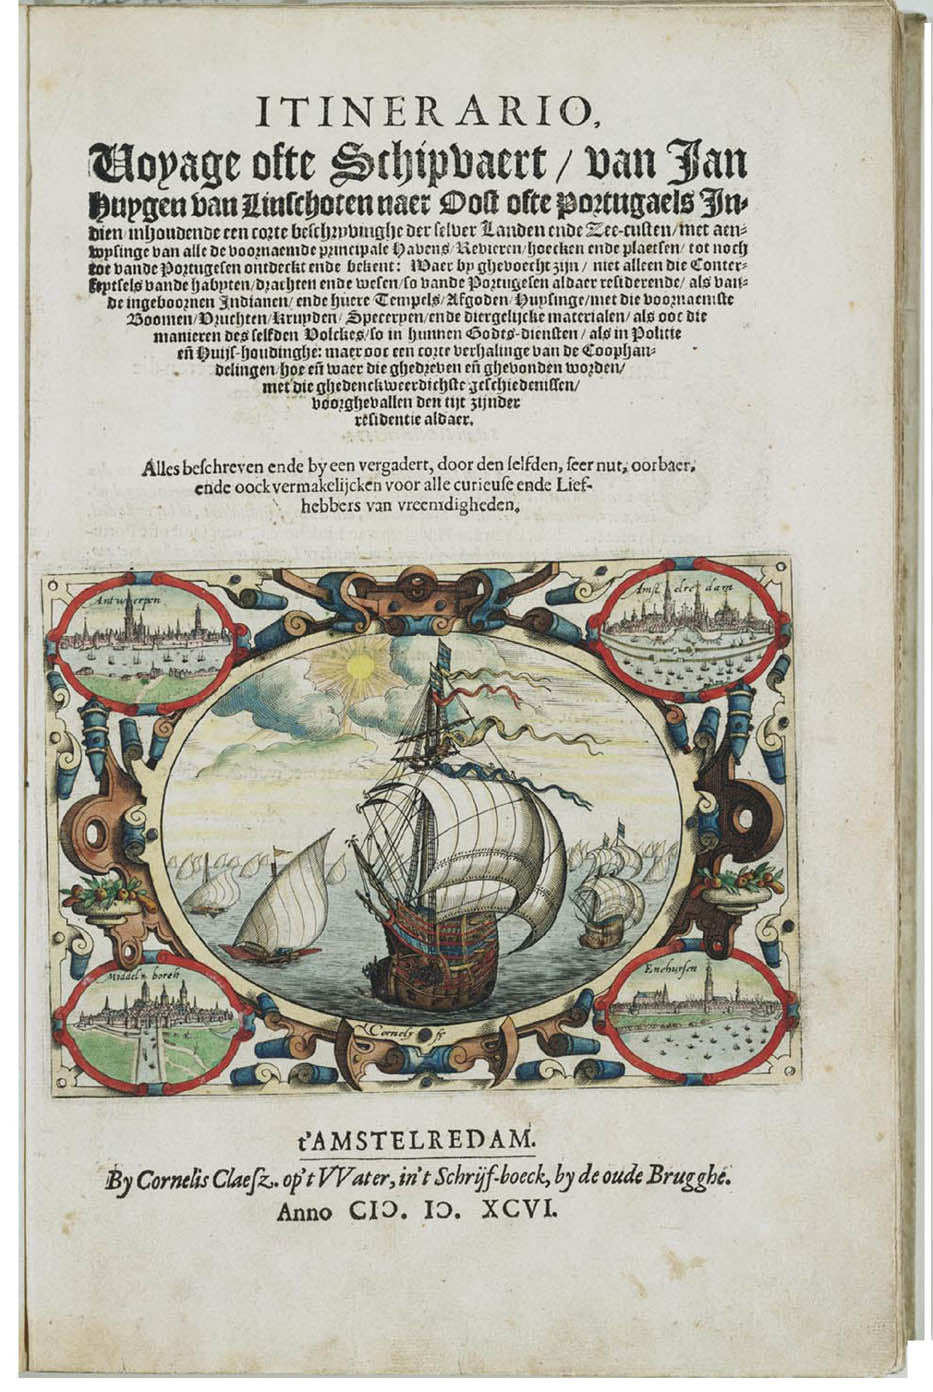 ITINERARIO,
Voyage ofte Schipvaert / van Jan
Huygen van Linschoten naer Oost ofte Portugaels In-
dien inhoudende een corte beschryvinghe der selver Landen ende Zee-custen / met aen-
wysinge van alle de voornaemde principale Havens / Revieren / hoecken ende plaetsen / tot noch
toe vande Portugesen ontdeckt ende bekent: Waer by ghevoecht zijn / niet alleen die Conter-
feytsels vande habyten / drachten ende wesen / so vande Portugesen aldaer residerende / als van-
de ingeboornen Indianen / ende huere Tempels / Afgoden / Huysinge / met die voornaemste
Boomen / Vruchten / Kruyden / Speceryen / ende diergelijcke materialen / als ooc die
manieren des selfden Volckes / so in hunnen Godts-diensten / als in Politie
eñ Huijs-houdinghe: maer ooc een corte verhalinge van de Coophan-
delingen / hoe eñ waer die ghedreven eñ ghevonden worden /
met die ghedenckweerdichste geschiedenissen /
voorghevallen den tijt zijnder
residentie aldaer.
Alles beschreven ende by een vergadert, door den selfden, seer nut, oorbaer,
ende oock vermakelijcken voor alle curieuse ende Lief-
hebbers van vreemdigheden.
Antwerpen
Amstelredam
Middelboreh
Enchuysen
Cornely fe
t'AMSTELREDAM.
By Cornelis Claesz. op't VVater, in't Schrijf-boeck, by de oude Brugghe.
Anno CIↃ. IↃ. XCVI.